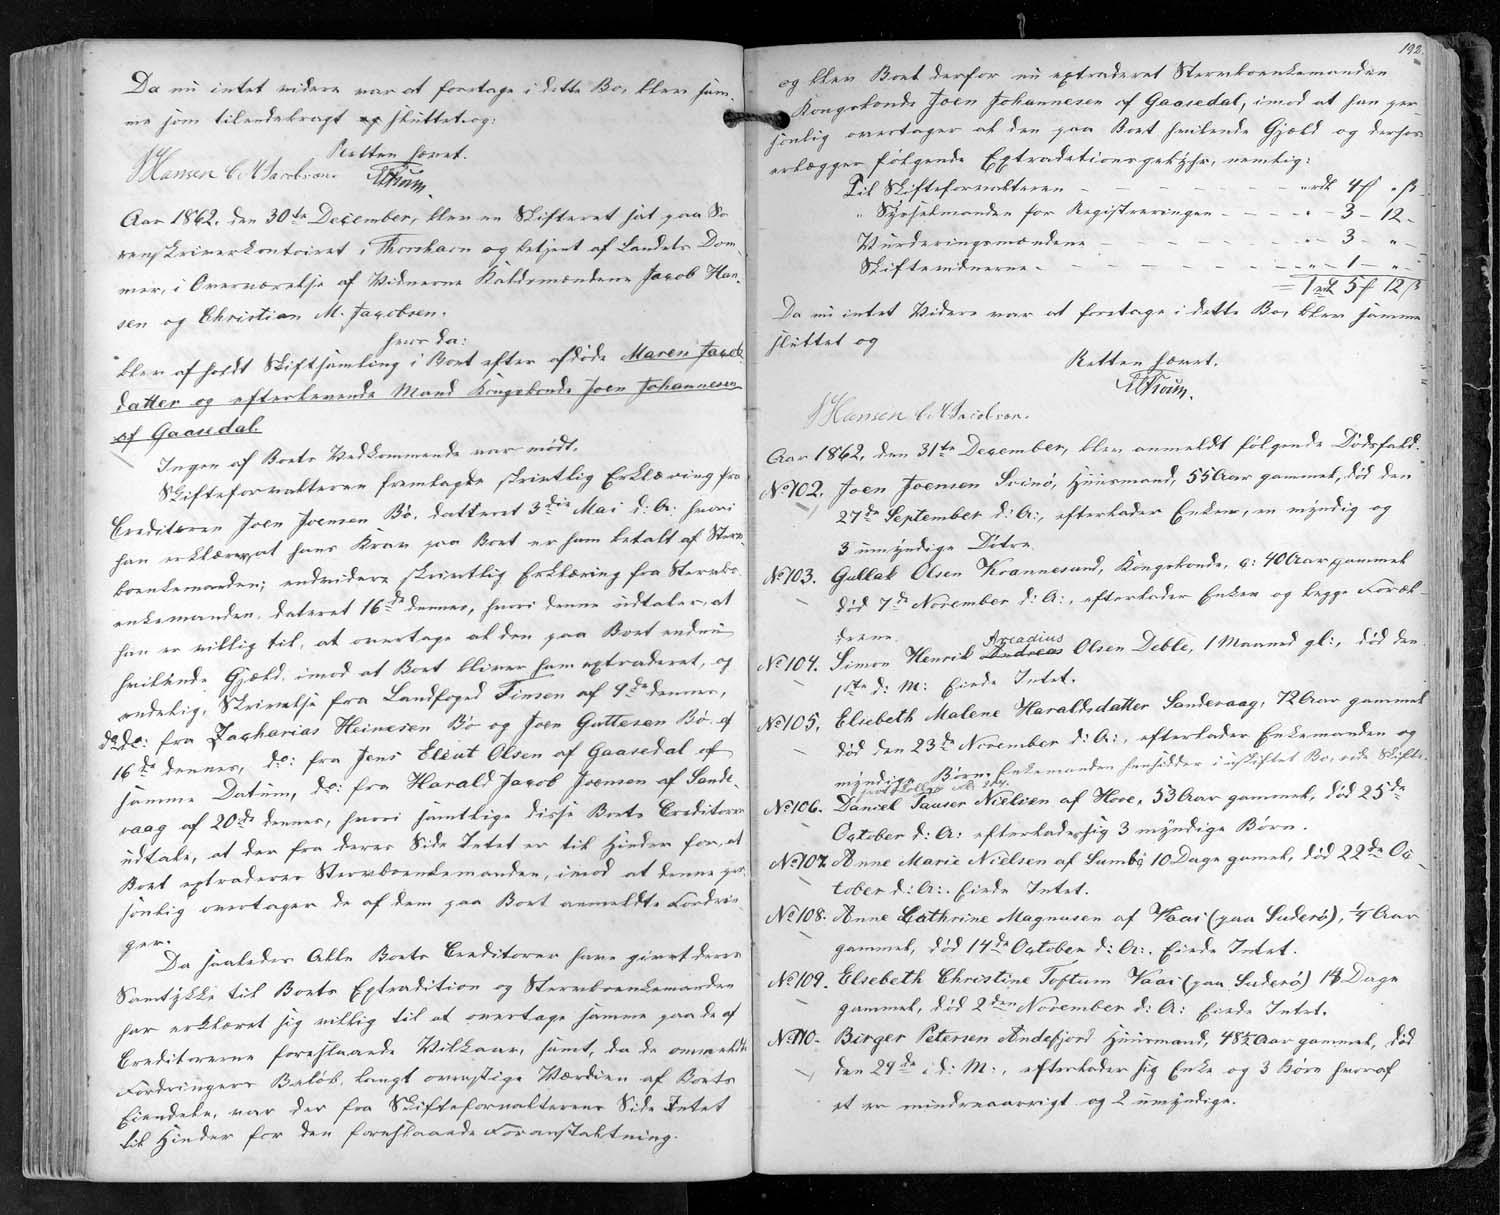 Da nu intet videre var at foretage i dette Bo, blev sam-
me som tilendebragt sluttet og:
Retten hævet.
JHansen C. M Jacobsen. HCTrum.
Aar 1862, den 30te December, blev en Skifteret sat paa So-
renskriverkontoiret i Thorshavn og betjent af Landets Dom-
mer, i Overværelse af Vidnerne Kaldsmændene Jacob Han-
sen og Christian M. Jacobsen.
hvor da:
blev afholdt Skiftesamling i Boet efter afdøde Maren Jacob-
datter og efterlevende Mand Kongsbonde Joen Johannesen
af Gaasedal.
Ingen af Boets Vedkommende var mødt.
Skifteforvalteren fremlagde skriftlig Erklæring fra
Creditoren Joen Joensen Bø, datteret 3die Mai d: A: hvori
han erklærer, at hans Krav paa Boet er ham betalt af Sterv-
boenkemanden; endvidere skriftlig Erklæring fra Stervbo-
enkemanden, dateret 16de dennes, hvori denne udtaler, at
han er villig til, at overtage al den paa Boet endnu
hvilende Gjæld, imod at Boet bliver ham extraderet, og
endelig, Skrivelse fra Landfoged Finsen af 9de dennes,
do do: fra Zacharias Heinesen Bø og Joen Guttesen Bø af
16de dennes, do: fra Jens Elieut Olsen af Gaasedal af
samme Datum, do: fra Harald Jacob Joensen af Sande-
vaag af 20de dennes, hvori samtlige disse Boets Creditorer
udtale, at der fra deres Side Intet er til Hinder for, at
Boet extraderes Stervboenkemanden, imod at denne per-
sonlig overtager de af dem paa Boet anmeldte Fordrin-
ger.
Da saaledes Alle Boets Creditorer have givet deres
Samtykke til Boets Extradition og Stervboenkemanden
har erklæret sig villig til at overtage samme paa de af
Creditorerne foreslaaede Vilkaar, samt, da de anmeldte
Fordringers Beløb langt overstige Værdien af Boets
Eiendele, var der fra Skifteforvalterens Side Intet
til Hinder for den foreslaaede Foranstaltning.
192.
og blev Boet derfor nu extraderet Stervboenkemanden
Kongsbonde Joen Johannesen af Gaasedal, imod at han per-
sonlig overtager al den paa Boet hvilende Gjæld og derhos
erlægger følgende Extraditionsgebyhr, nemlig:
Til Skifteforvalteren - - - - - " rdl 4 ƒ " β
" Sysselmanden for Registreringen - - - - " - 3 - 12 -
Vurderingsmændene - - - - - " - 3 - " -
Skiftevidnerne - - - - - - - " - 1 - " -
= 1 rdl 5 ƒ 12 β
Da nu intet Videre var at foretage i dette Bo, blev samme
sluttet og
Retten hævet.
HCTrum.
JHansen C. M Jacobsen.
Aar 1862, den 31te December, blev anmeldt følgende Dødsfald:
No 102. Joen Joensen Svinø, Huusmand, 55 Aar gammel, død den
27de September d: A:, efterlader Enken, en myndig og
3 umyndige Døtre.
No 103. Gullak Olsen Kvannesund, Kongsbonde, c: 40 Aar gammel
død 7de November d: A:, efterlader Enken og begge Foræl-
drene.
Arcadius
No 104. Simon Henrik Andreas Olsen Deble, 1 Maaned gl:, død den
1ste d: M: Eiede Intet.
No 105. Elsebeth Malene Haraldsdatter Sandevaag, 72 Aar gammel
død den 23de November d: A:, efterlader Enkemanden og
myndige Børn. Enkemanden henhidder i uskiftet Bo, vide Skifte-
protokollen
No 106. Daniel Tauser Nielsen af Hove, 53 Aar gammel, død 25de
October d: A: efterlader sig 3 myndige Børn.
No 107. Anne Marie Nielsen af Sumbø 10 Dage gamel, død 22de Oc-
tober d: A:. Eiede Intet.
No 108. Anne Cathrine Magnusen af Vaai (paa Suderø), 1/4 Aar
gammel, død 14de October d: A:. Eiede Intet.
No 109. Elsebeth Christine Toftum Vaai (paa Suderø) 14 Dage
gammel, død 2den November d: A: Eiede Intet.
No 110. Birger Petersen Andefjord Huusmand, 48½ Aar gammel, død
den 29de i d: M:, efterlader sig Enke og 3 Børn hvoraf
et er mindreaarigt og 2 umyndige.